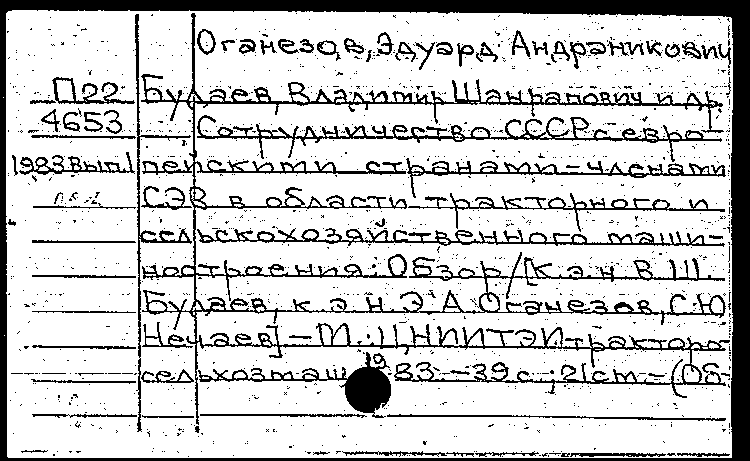 Оганезов, Эдуард Андраникович
П22 Будаев, Владимир Шанрапович и др.
4653 Сотрудничество СССР с евро-
1983 вып.1 пейскими странами-членами
СЭВ в области тракторного и
сельскохозяйственного маши-
ностроения: Обзор / [К.э.н В.Ш.
Будаев, к.э.н. Э.А Оганезов, С.Ю
Нечаев] - М.: ЦНИИТЭИтракторо-
сельхозмаш, 1983. - 39 с.; 21 см. - (Об-